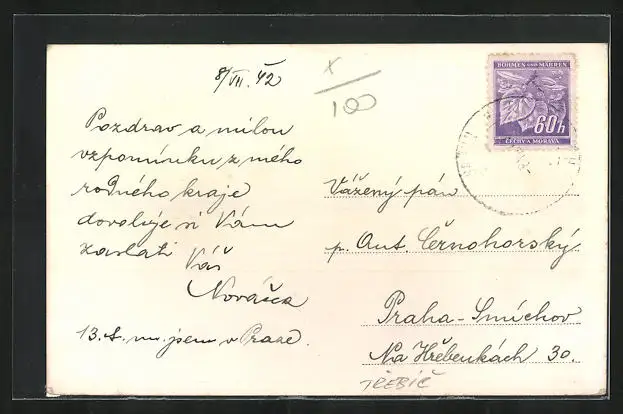 8/VII. 42
X/100
Pozdrav a milou
vzpomínku z mého
rodného kraje
dovoluje si Vám
zaslati Váš
Nováček
13. t. m. jsem v Praze.
BÖHMEN UND MÄHREN
60h
ČECHY A MORAVA
Vážený pán
p. Ant. Černohorský
Praha-Smíchov
Na Hřebenkách 30.
TŘEBÍČ